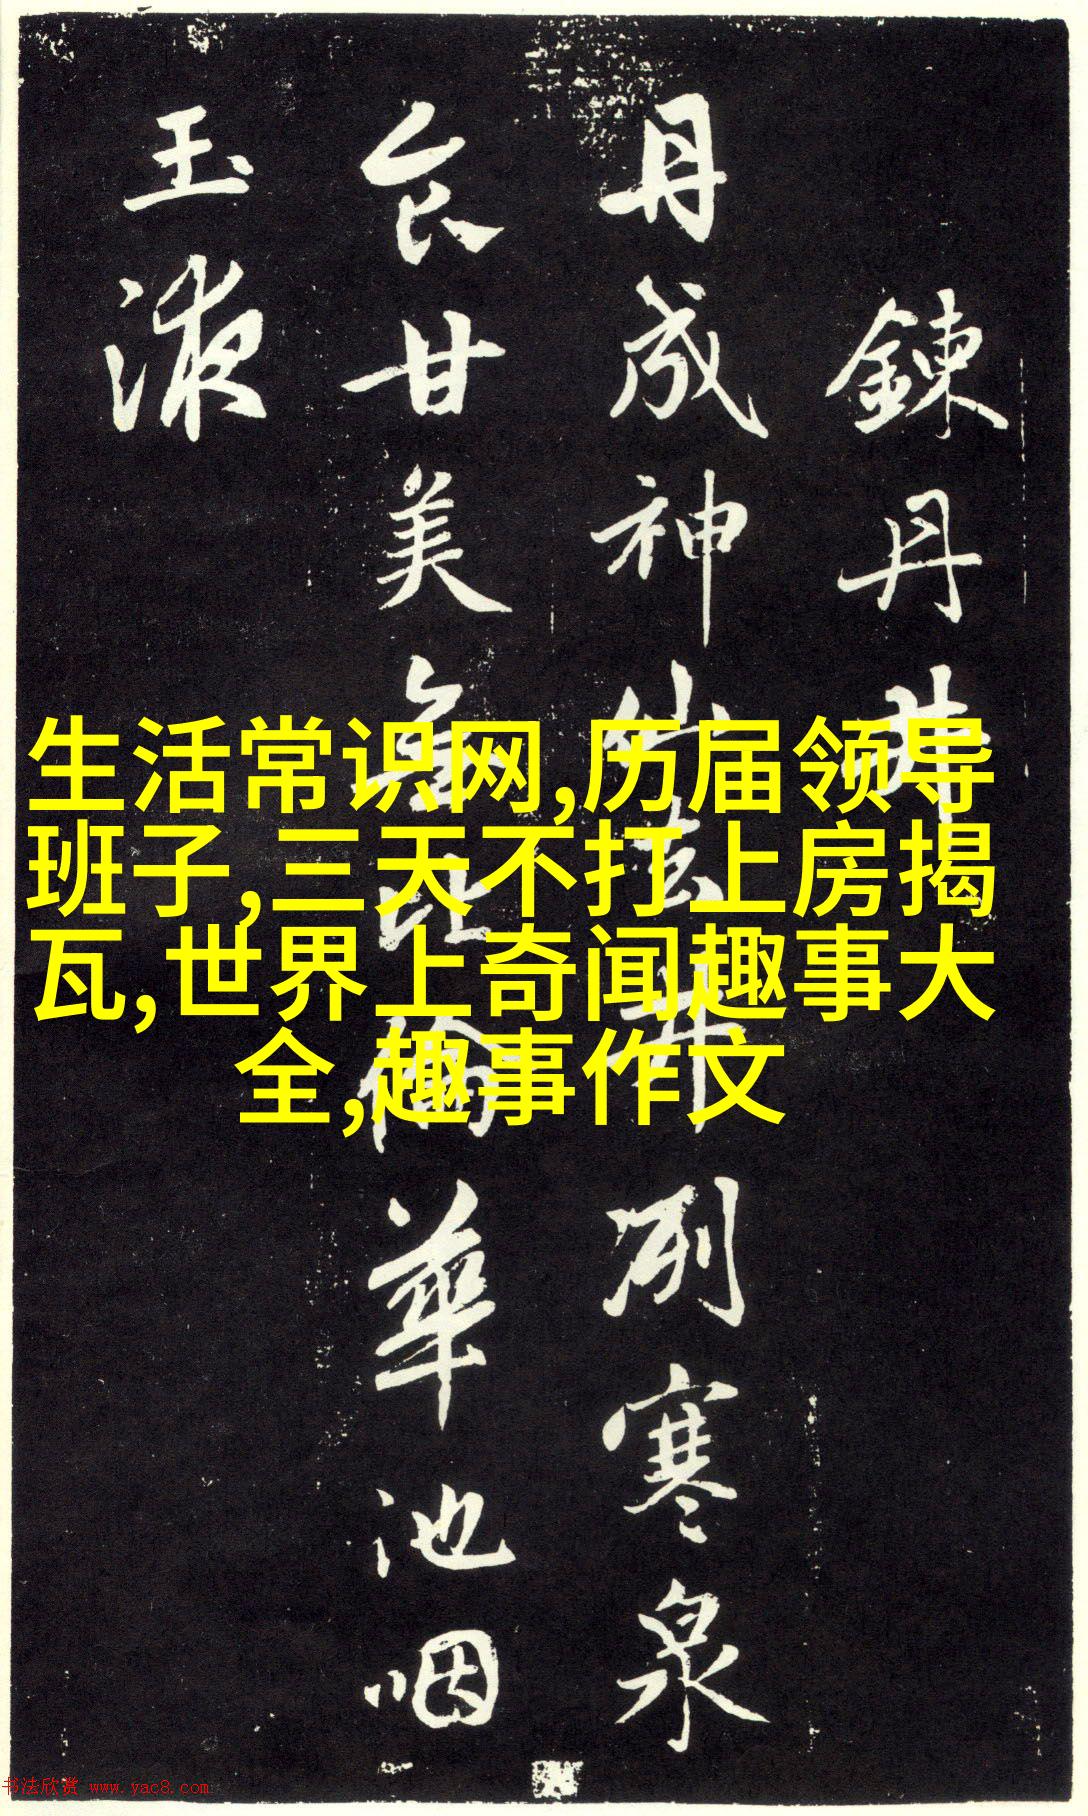 鍊丹井
丹成神仙去井冽寒泉
食甘美無比倫華池咽
玉液
生活常识网,历届领导
班子,三天不打上房揭
瓦,世界上奇闻趣事大
全,趣事作文
书法欣赏 www.yac8.com